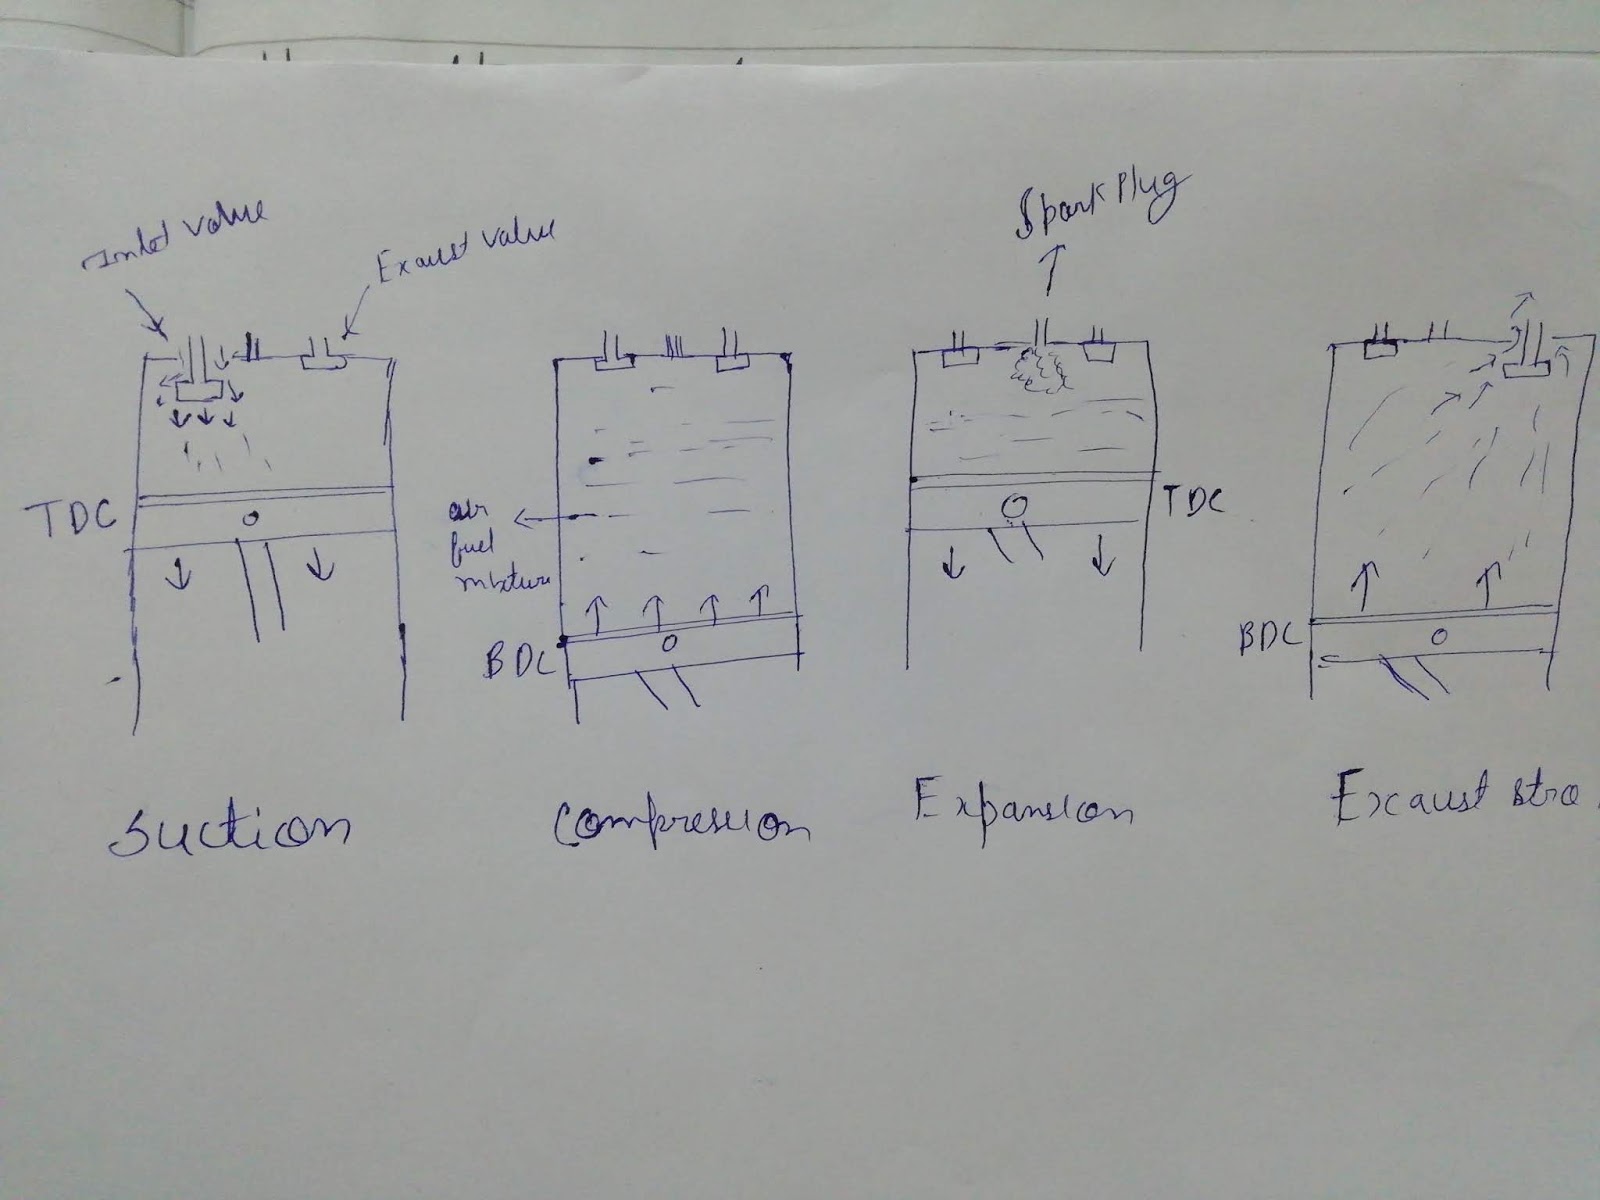 Inlet Value
Exaust value
Spark Plug
TDC
air
fuel
mixture
BDC
TDC
BDC
Suction
Compression
Expansion
Excaust stro